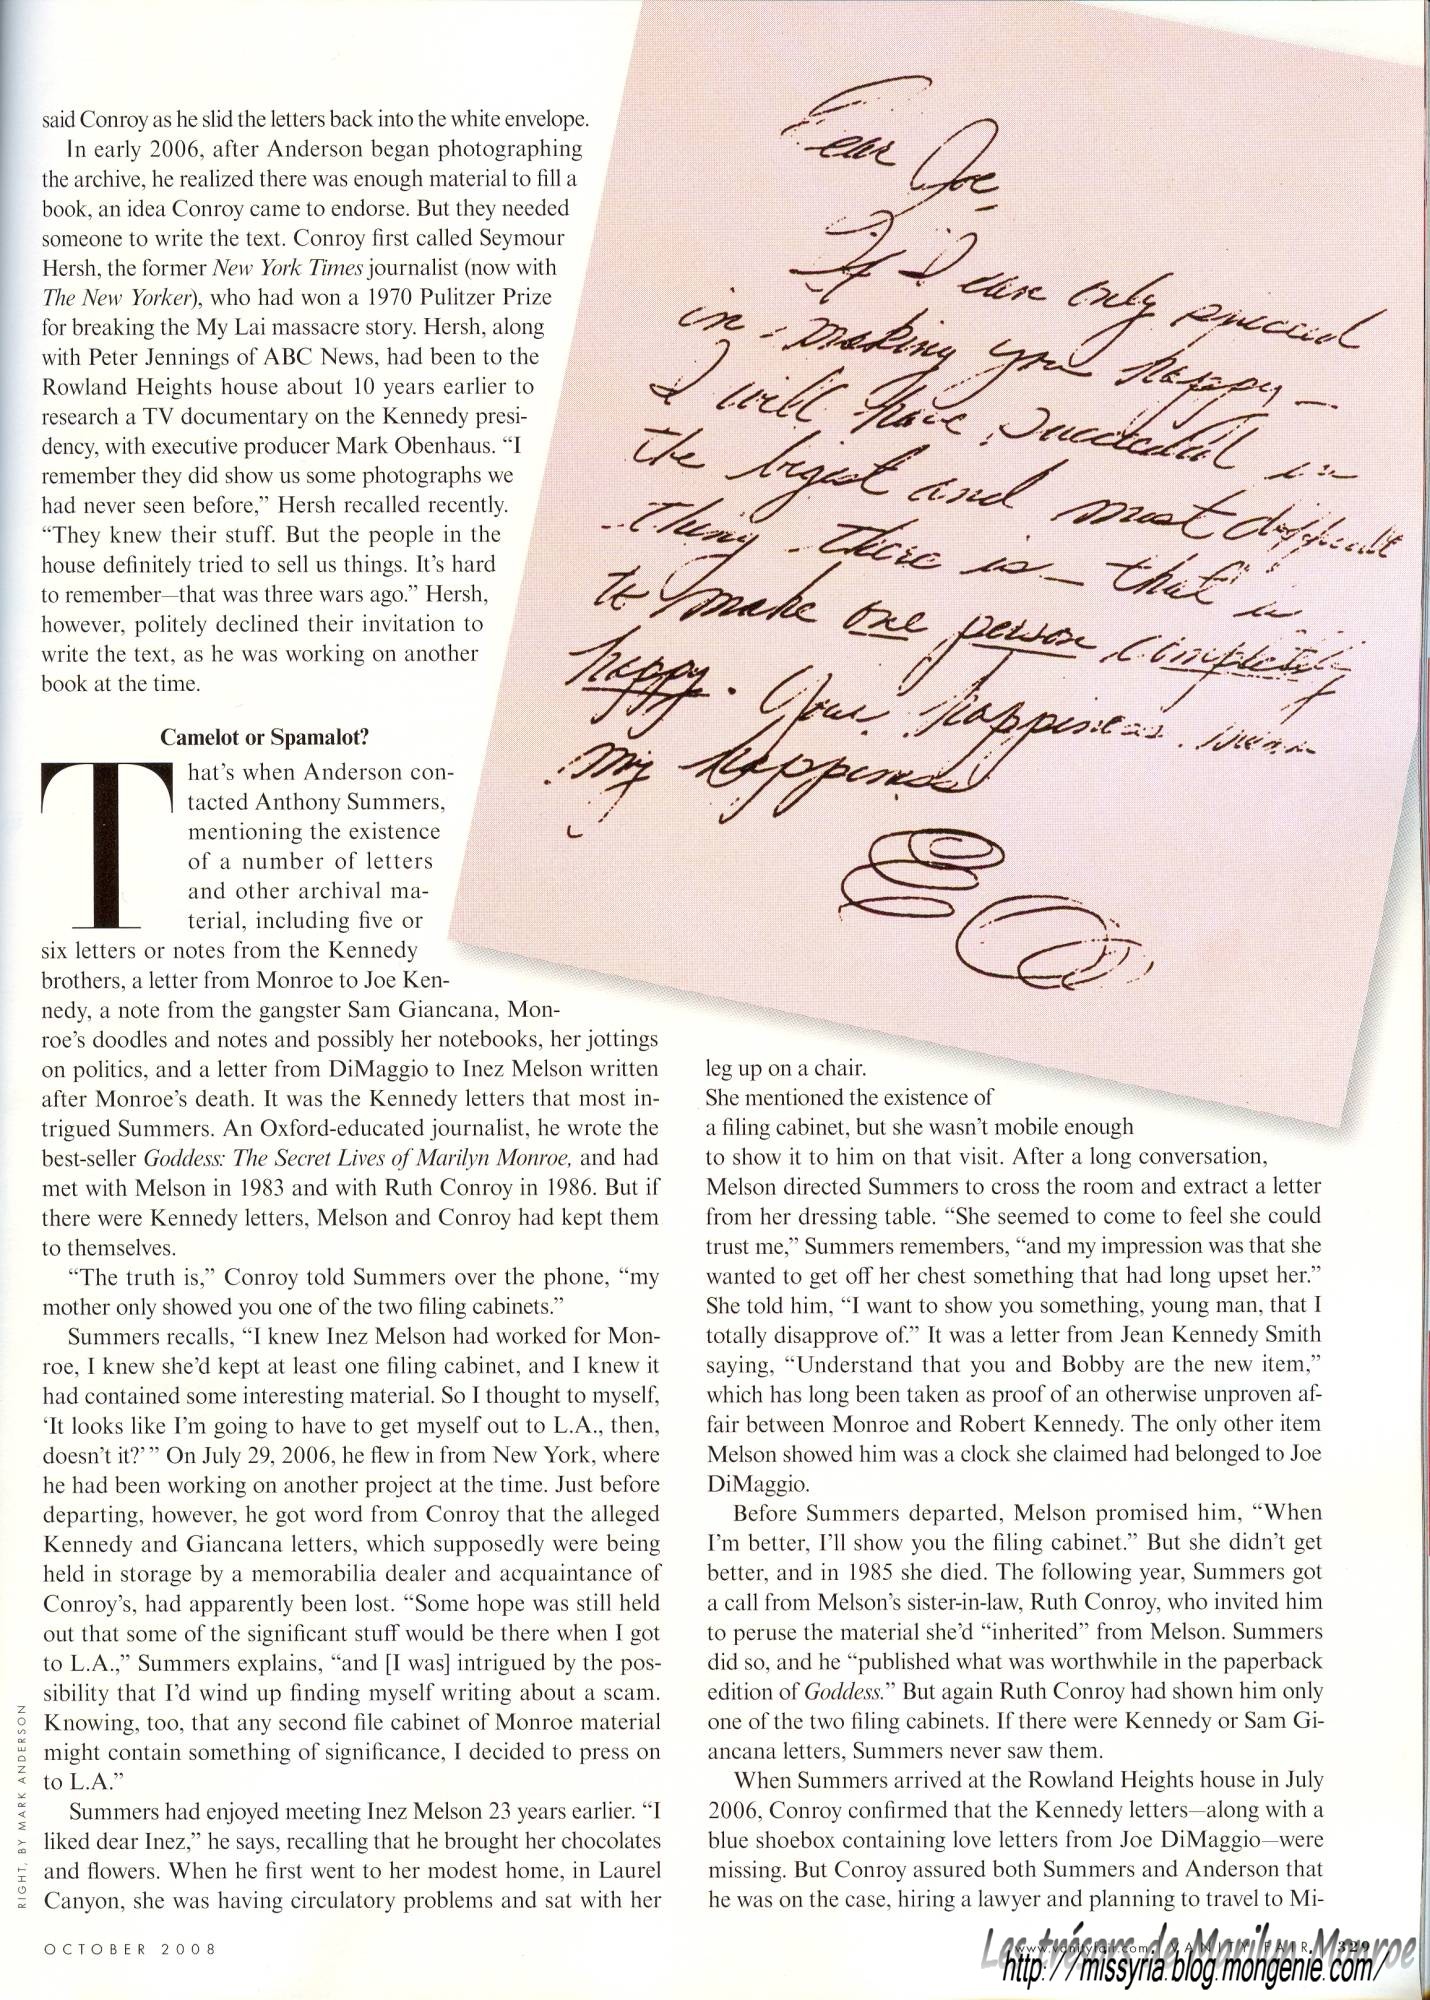 said Conroy as he slid the letters back into the white envelope.
In early 2006, after Anderson began photographing
the archive, he realized there was enough material to fill a
book, an idea Conroy came to endorse. But they needed
someone to write the text. Conroy first called Seymour
Hersh, the former New York Times journalist (now with
The New Yorker), who had won a 1970 Pulitzer Prize
for breaking the My Lai massacre story. Hersh, along
with Peter Jennings of ABC News, had been to the
Rowland Heights house about 10 years earlier to
research a TV documentary on the Kennedy presi-
dency, with executive producer Mark Obenhaus. “I
remember they did show us some photographs we
had never seen before,” Hersh recalled recently.
“They knew their stuff. But the people in the
house definitely tried to sell us things. It’s hard
to remember—that was three wars ago.” Hersh,
however, politely declined their invitation to
write the text, as he was working on another
book at the time.
Camelot or Spamalot?
That’s when Anderson con-
tacted Anthony Summers,
mentioning the existence
of a number of letters
and other archival ma-
terial, including five or
six letters or notes from the Kennedy
brothers, a letter from Monroe to Joe Ken-
nedy, a note from the gangster Sam Giancana, Mon-
roe’s doodles and notes and possibly her notebooks, her jottings
on politics, and a letter from DiMaggio to Inez Melson written
after Monroe’s death. It was the Kennedy letters that most in-
trigued Summers. An Oxford-educated journalist, he wrote the
best-seller Goddess: The Secret Lives of Marilyn Monroe, and had
met with Melson in 1983 and with Ruth Conroy in 1986. But if
there were Kennedy letters, Melson and Conroy had kept them
to themselves.
“The truth is,” Conroy told Summers over the phone, “my
mother only showed you one of the two filing cabinets.”
Summers recalls, “I knew Inez Melson had worked for Mon-
roe, I knew she’d kept at least one filing cabinet, and I knew it
had contained some interesting material. So I thought to myself,
‘It looks like I’m going to have to get myself out to L.A., then,
doesn’t it?’ ” On July 29, 2006, he flew in from New York, where
he had been working on another project at the time. Just before
departing, however, he got word from Conroy that the alleged
Kennedy and Giancana letters, which supposedly were being
held in storage by a memorabilia dealer and acquaintance of
Conroy’s, had apparently been lost. “Some hope was still held
out that some of the significant stuff would be there when I got
to L.A.,” Summers explains, “and [I was] intrigued by the pos-
sibility that I’d wind up finding myself writing about a scam.
Knowing, too, that any second file cabinet of Monroe material
might contain something of significance, I decided to press on
to L.A.”
Summers had enjoyed meeting Inez Melson 23 years earlier. “I
liked dear Inez,” he says, recalling that he brought her chocolates
and flowers. When he first went to her modest home, in Laurel
Canyon, she was having circulatory problems and sat with her
Dear Joe,
If I can only succeed
in making you happy—
I will have succeeded in
the bigest and most difficult
thing there is—that is
to make one person completely
happy. Your happiness means
my happiness
leg up on a chair.
She mentioned the existence of
a filing cabinet, but she wasn’t mobile enough
to show it to him on that visit. After a long conversation,
Melson directed Summers to cross the room and extract a letter
from her dressing table. “She seemed to come to feel she could
trust me,” Summers remembers, “and my impression was that she
wanted to get off her chest something that had long upset her.”
She told him, “I want to show you something, young man, that I
totally disapprove of.” It was a letter from Jean Kennedy Smith
saying, “Understand that you and Bobby are the new item,”
which has long been taken as proof of an otherwise unproven af-
fair between Monroe and Robert Kennedy. The only other item
Melson showed him was a clock she claimed had belonged to Joe
DiMaggio.
Before Summers departed, Melson promised him, “When
I’m better, I’ll show you the filing cabinet.” But she didn’t get
better, and in 1985 she died. The following year, Summers got
a call from Melson’s sister-in-law, Ruth Conroy, who invited him
to peruse the material she’d “inherited” from Melson. Summers
did so, and he “published what was worthwhile in the paperback
edition of Goddess.” But again Ruth Conroy had shown him only
one of the two filing cabinets. If there were Kennedy or Sam Gi-
ancana letters, Summers never saw them.
When Summers arrived at the Rowland Heights house in July
2006, Conroy confirmed that the Kennedy letters—along with a
blue shoebox containing love letters from Joe DiMaggio—were
missing. But Conroy assured both Summers and Anderson that
he was on the case, hiring a lawyer and planning to travel to Mi-
RIGHT, BY MARK ANDERSON
OCTOBER 2008
www.vanityfair.com VANITY FAIR 329
Les trésors de Marilyn Monroe
http://missyria.blog.mongenie.com/